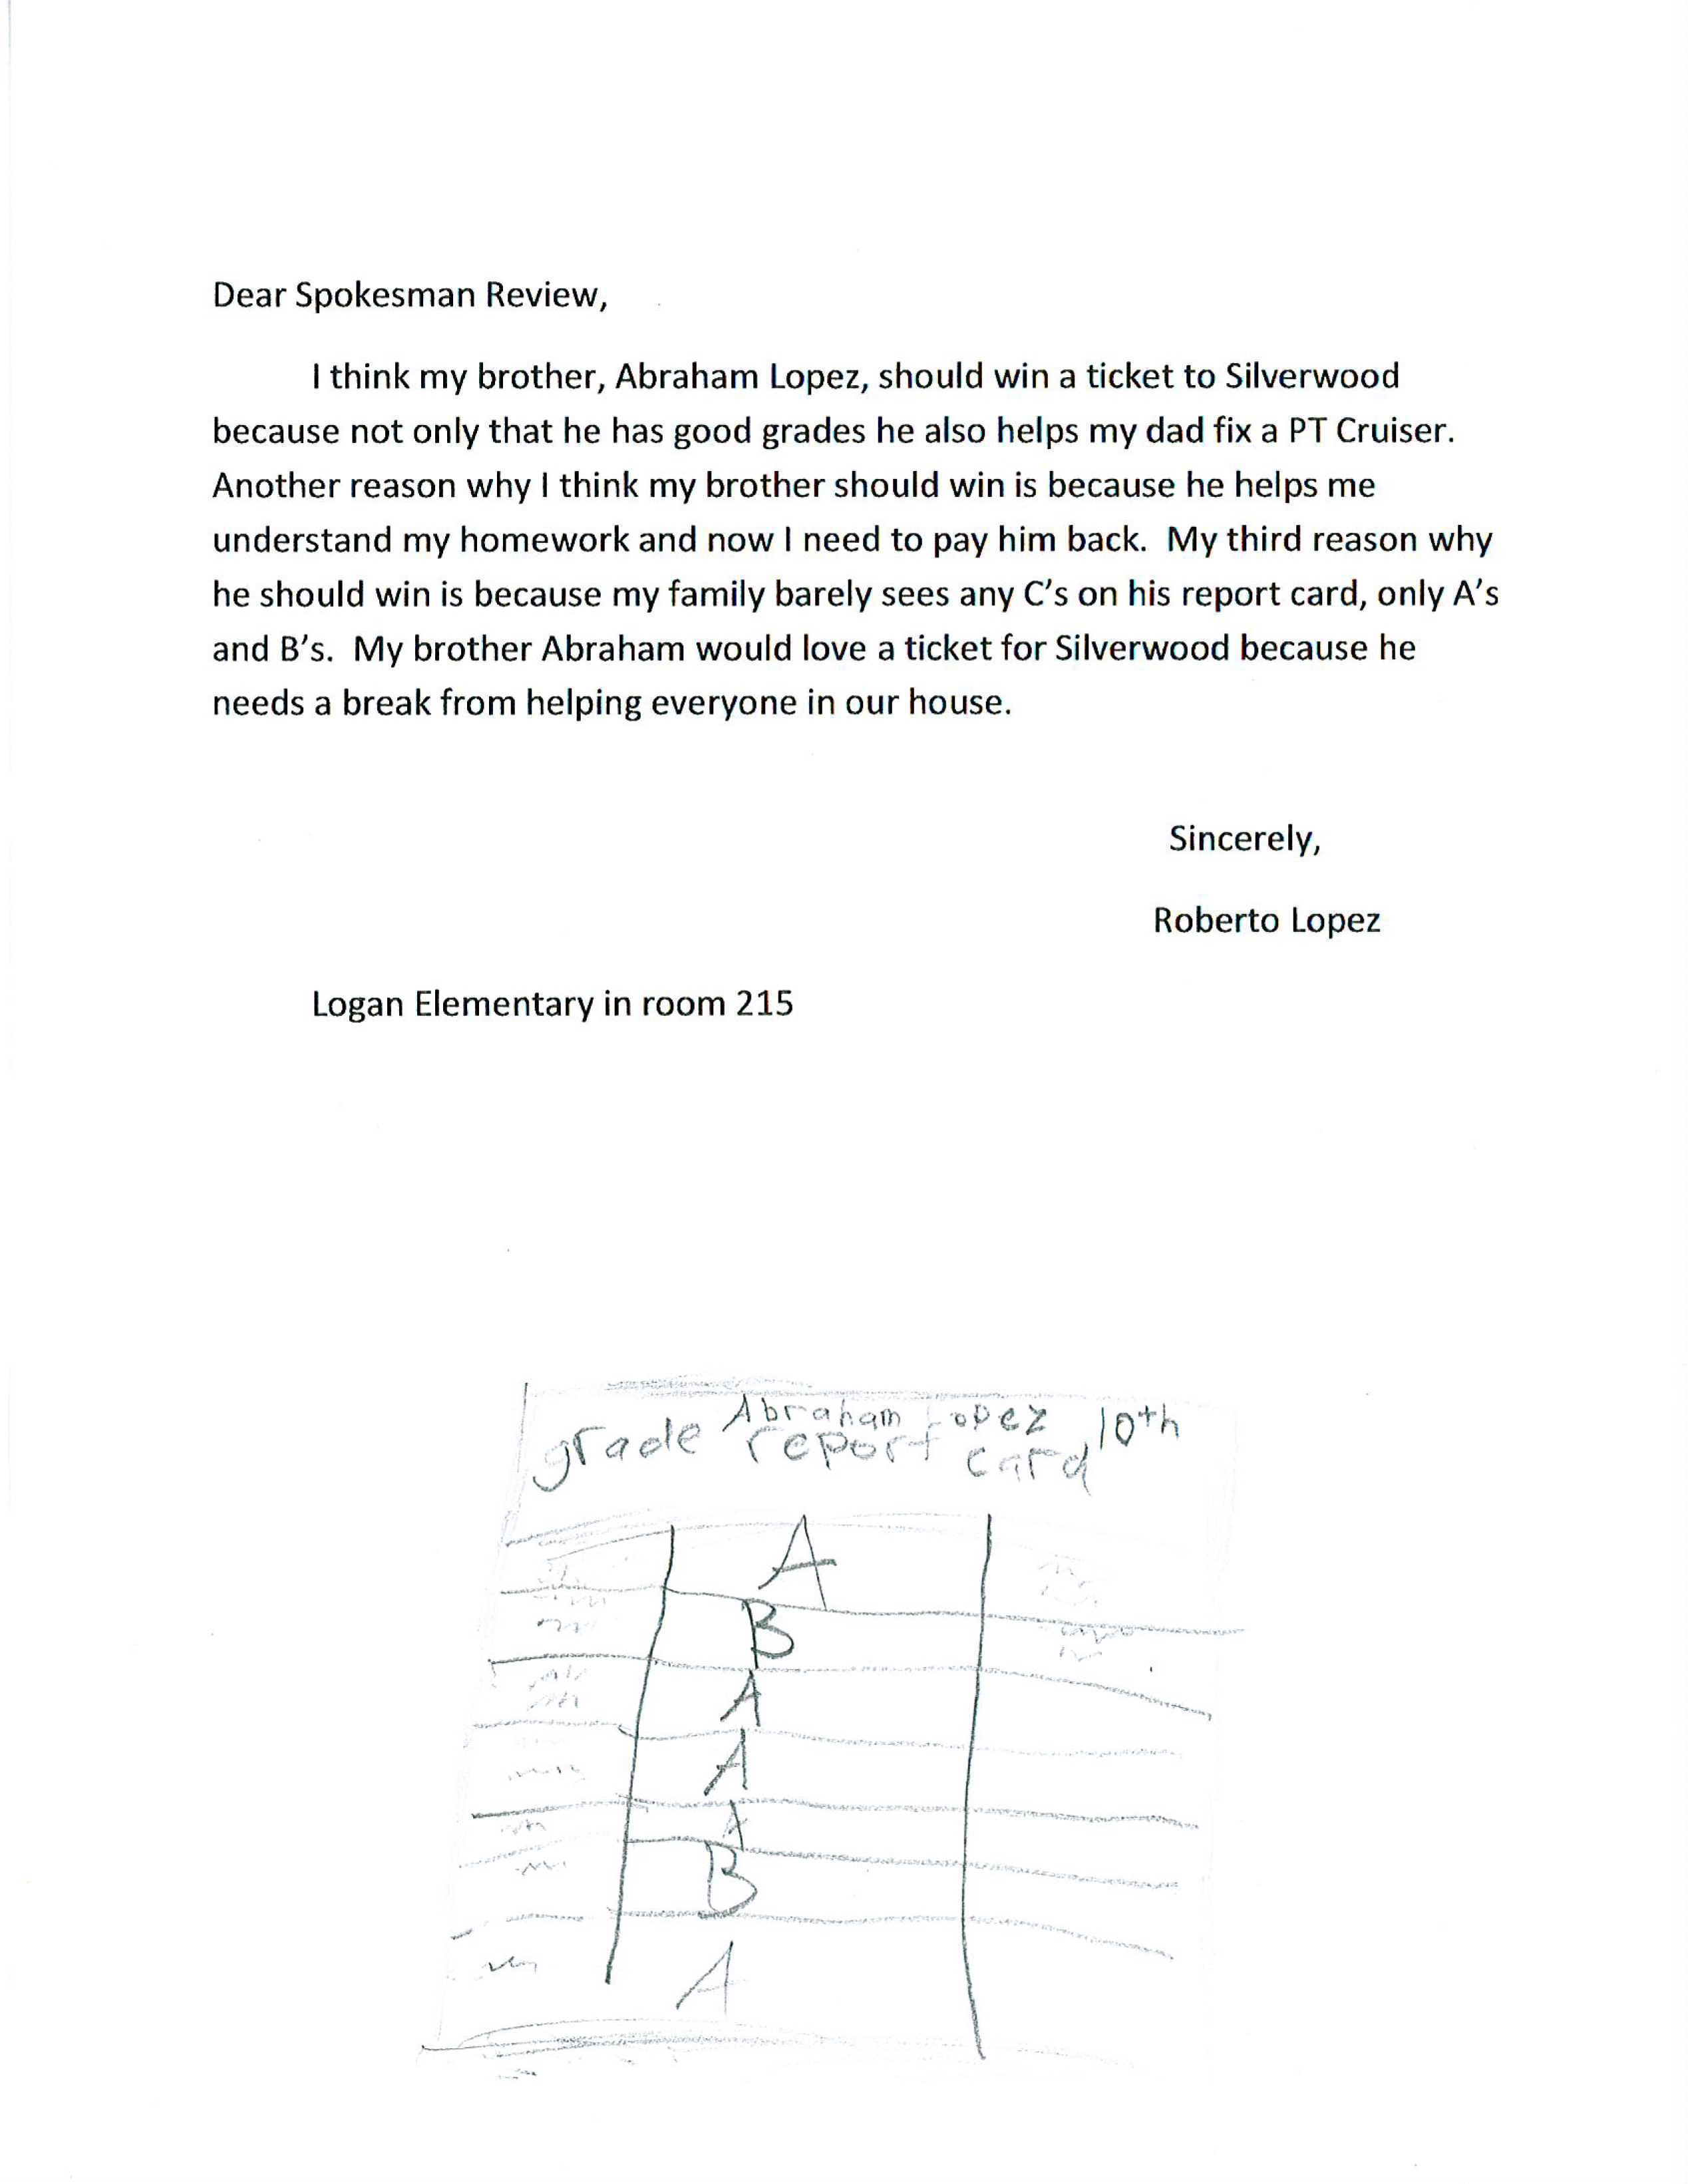 Dear Spokesman Review,
I think my brother, Abraham Lopez, should win a ticket to Silverwood
because not only that he has good grades he also helps my dad fix a PT Cruiser.
Another reason why I think my brother should win is because he helps me
understand my homework and now I need to pay him back.  My third reason why
he should win is because my family barely sees any C's on his report card, only A's
and B's.  My brother Abraham would love a ticket for Silverwood because he
needs a break from helping everyone in our house.
Sincerely,
Roberto Lopez
Logan Elementary in room 215
Abraham Lopez 10th
grade report card
A
B
A
A
A
B
A